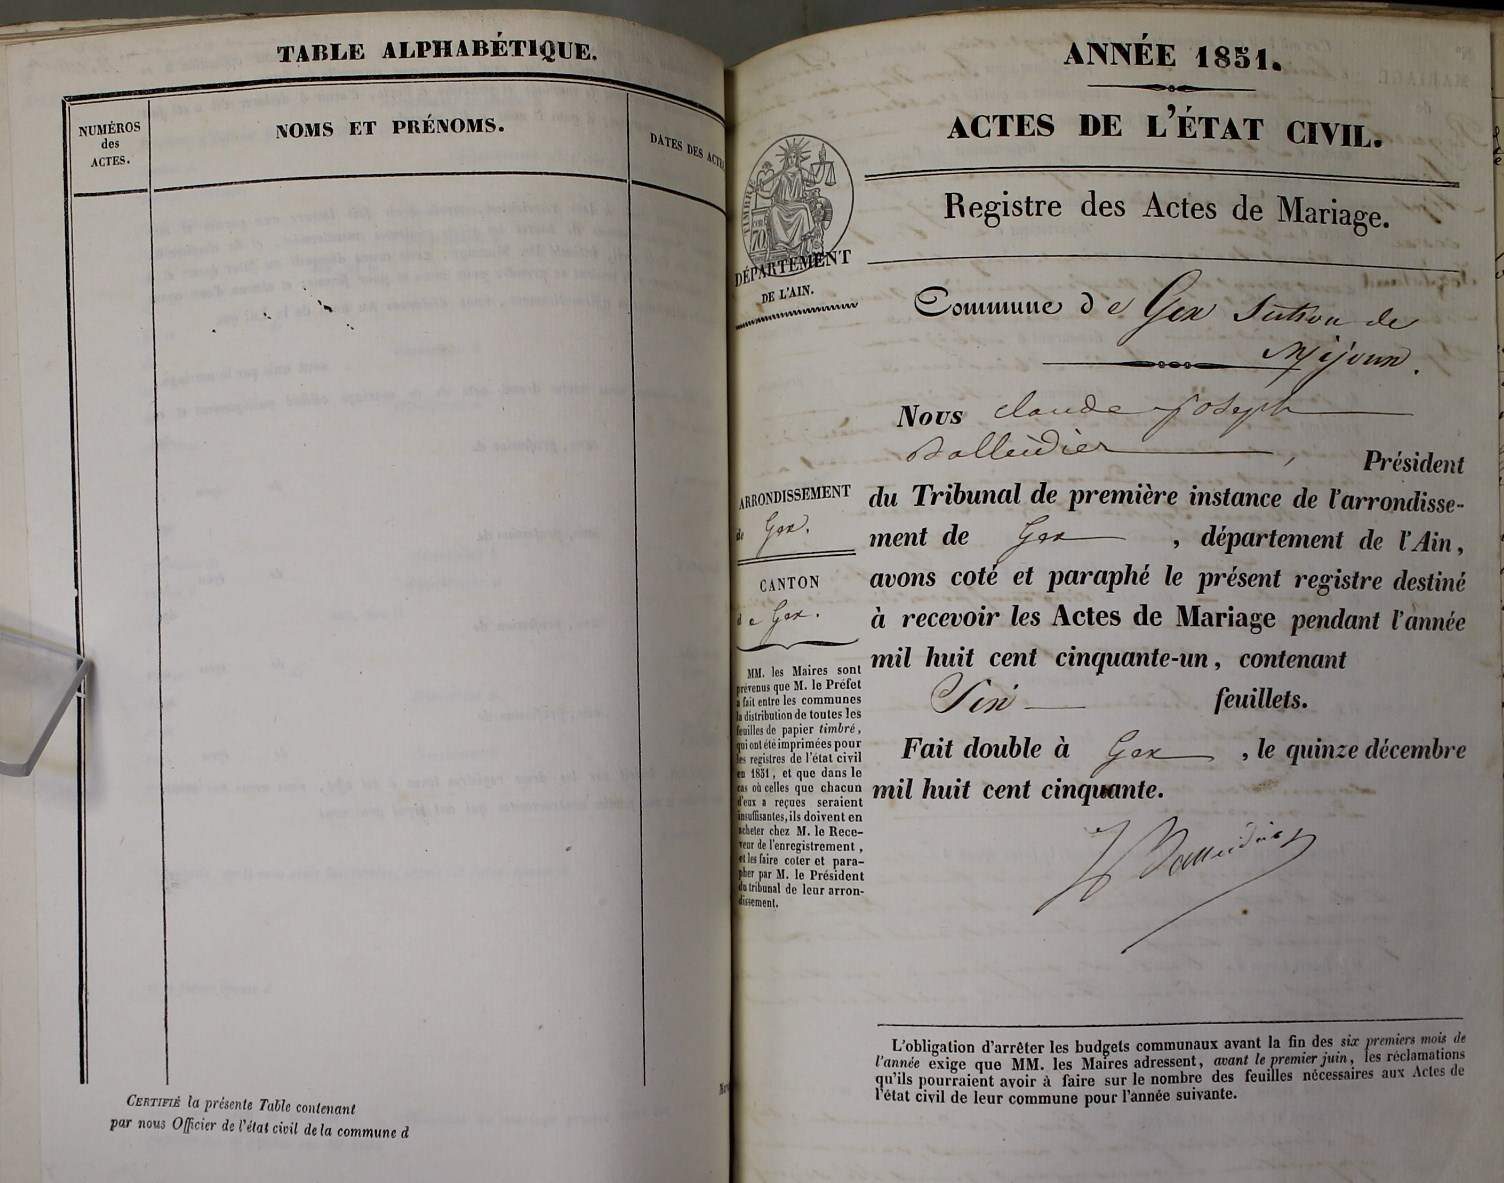 TABLE ALPHABÉTIQUE.
NUMÉROS
des
ACTES.
NOMS ET PRÉNOMS.
DATES DES ACTES
CERTIFIÉ la présente Table contenant
par nous Officier de l'état civil de la commune d
ANNÉE 1851.
ACTES DE L'ÉTAT CIVIL.
Registre des Actes de Mariage.
TIMBRE
70
DÉPARTEMENT
DE L'AIN.
Commune de Gex Section de
Mijoux.
Nous Claude Joseph
Balleidier, Président
du Tribunal de première instance de l'arrondisse-
ment de Gex, département de l'Ain,
avons coté et paraphé le présent registre destiné
à recevoir les Actes de Mariage pendant l'année
mil huit cent cinquante-un, contenant
Six feuillets.
Fait double à Gex, le quinze décembre
mil huit cent cinquante.
Balleidier
ARRONDISSEMENT
de Gex.
CANTON
de Gex.
MM. les Maires sont
prévenus que M. le Préfet
a fait entre les communes
la distribution de toutes les
feuilles de papier timbré,
qui ont été imprimées pour
les registres de l'état civil
en 1851, et que dans le
cas où celles que chacun
d'eux a reçues seraient
insuffisantes, ils doivent en
acheter chez M. le Rece-
veur de l'enregistrement,
et les faire coter et para-
pher par M. le Président
du tribunal de leur arron-
dissement.
L'obligation d'arrêter les budgets communaux avant la fin des six premiers mois de
l'année exige que MM. les Maires adressent, avant le premier juin, les réclamations
qu'ils pourraient avoir à faire sur le nombre des feuilles nécessaires aux Actes de
l'état civil de leur commune pour l'année suivante.